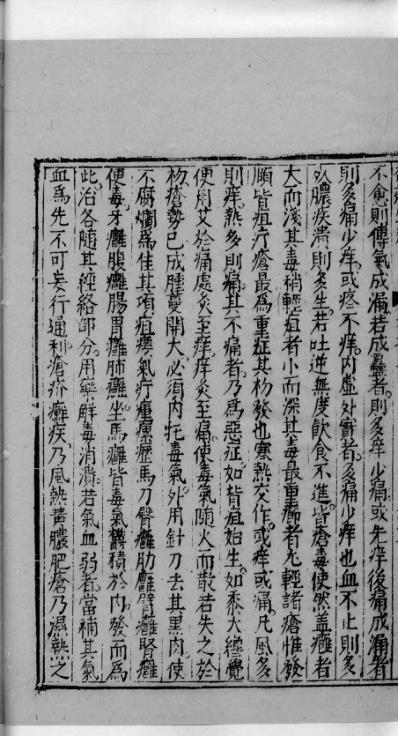 不愈則傳氣成漏若成蠹者則多痒少痛或先痒後痛成漏者
則多痛少痒或疼不痒内虚外實者多痛少痒也血不止則多
死膿疾潰則多生若吐逆無度飲食不進皆瘡毒使然盖癰者
大而淺其毒稍輕疽者小而深其毒最重癤者尤輕諸瘡惟發
頤皆疽疔瘡最爲重症其初發也寒熱交作或痒或痛凡風多
則痒熱多則痛其不痛者乃爲惡症如背疽始生如黍大纔覺
便用艾於痛處灸至痒痒灸至痛使毒氣隨火而散若失之於
初瘡勢已成腫蔓開大必須内托毒氣外用針刀去其黒肉使
不腐爛爲佳其項疽瘿氣疔瘇瘰癧馬刀臀癰肋癰臂癰腎癰
便毒牙癰腹癰腸胃癰肺癰坐馬癰皆毒氣欝積於内發而爲
此治各隨其經絡部分用藥解毒消潰若氣血弱者當補其氣
血爲先不可妄行通利瘡疥癬疾乃風熱黄膿肥瘡乃濕熱之